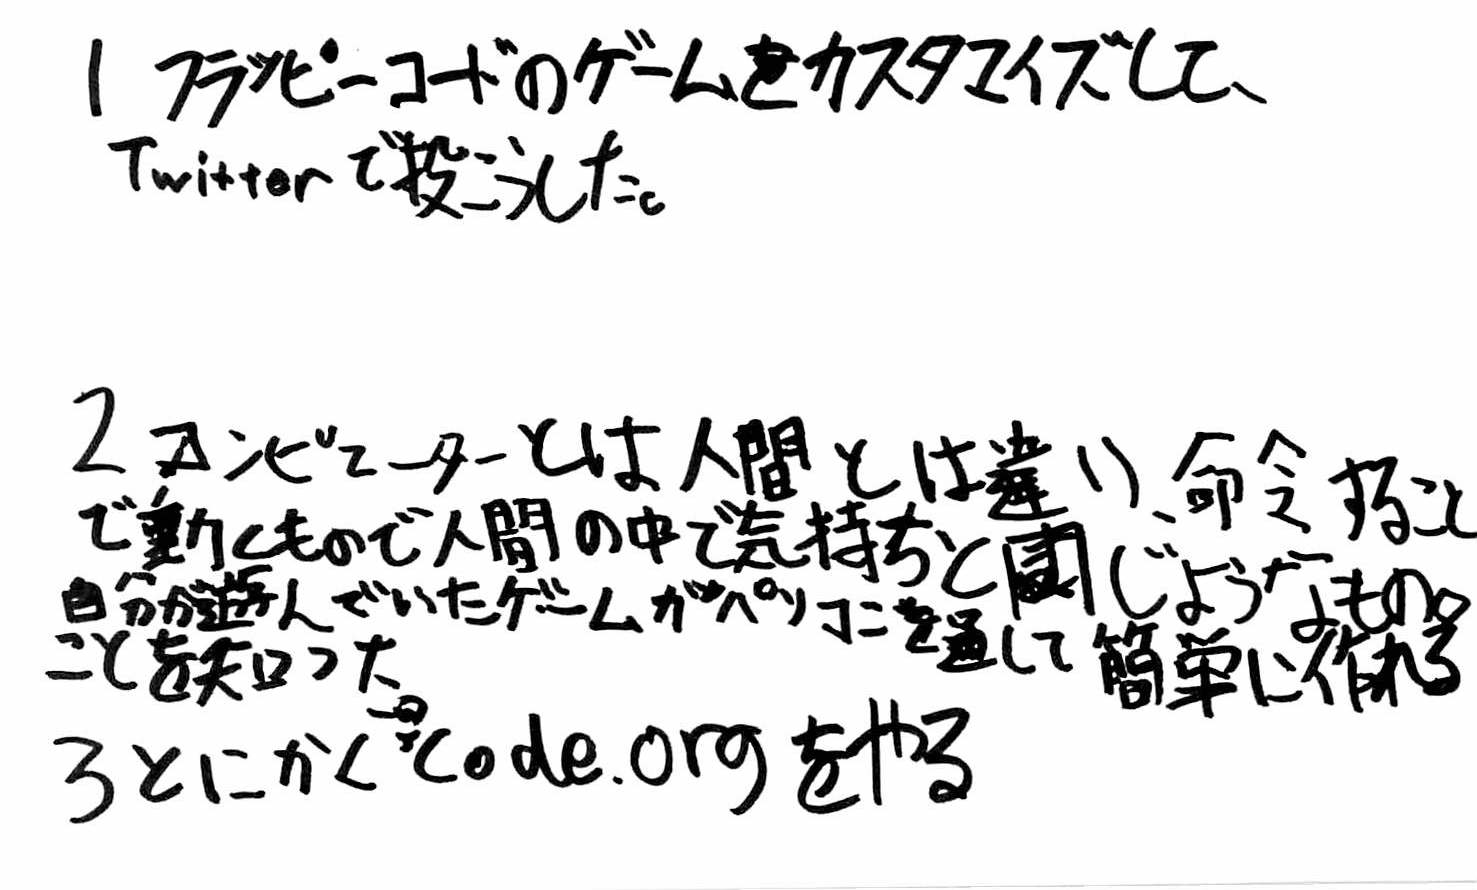 1 フラッピーコードのゲームをカスタマイズして、
Twitterで投こうした。
2 コンピューターとは人間とは違い、命令すること
で動くもので人間の中で気持ちと同じようなもの。
自分が遊んでいたゲームがパソコンを通して簡単に作れる
ことを知った
3 とにかくCode.orgをやる